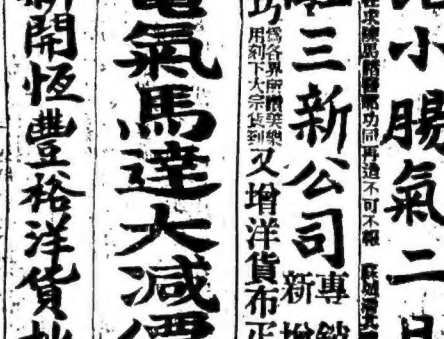 小腸氣二日
功同再造不可不報
三新公司
專銷
新增
為各界所讚美樂
用刻下大宗貨到
又增洋貨布疋
電氣馬達大減價
新開恆豐裕洋貨